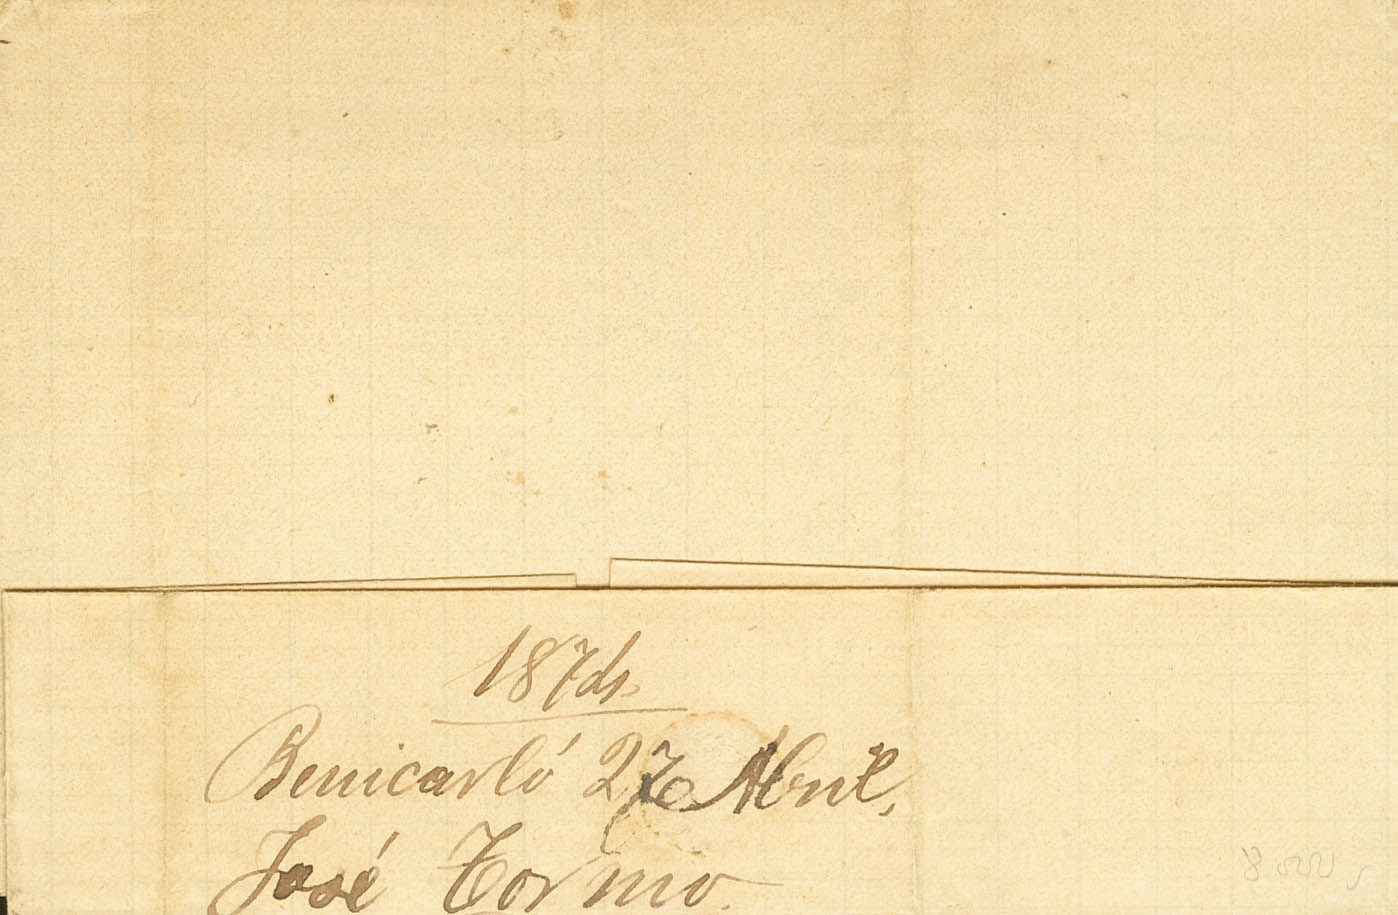 1874.
Benicarló 27 Abril,
José Tormo.